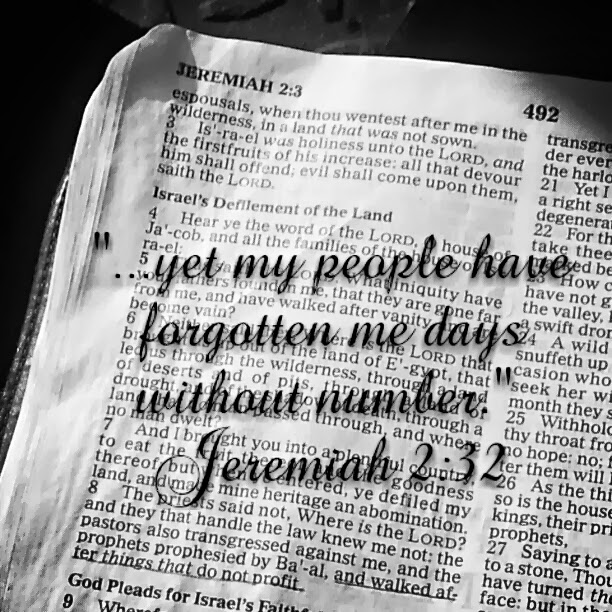 JEREMIAH 2:3
492
espousals, when thou wentest after me in the
wilderness, in a land that was not sown.
3 Is'-ra-el was holiness unto the LORD, and
the firstfruits of his increase: all that devour
him shall offend; evil shall come upon them,
saith the LORD.
Israel's Defilement of the Land
4 Hear ye the word of the LORD, O house of
Ja'-cob, and all the families of the
ra-el:
5 iniquity have
found in me, that they are gone far
from me, and have walked after vanity
become vain?
6 the LORD that
of the land of E'-gypt, that
led us through the wilderness, through a land
of deserts and of pits, through a
drought, through a
passed through, and where
no man dwelt?
7 And I brought you into a plentiful country,
to eat the goodness
thereof; but entered, ye defiled my
land, and made mine heritage an abomination.
8 The priests said not, Where is the LORD?
and they that handle the law knew me not: the
pastors also transgressed against me, and the
prophets prophesied by Ba'-al, and walked af-
ter things that do not profit.
God Pleads for Israel's
9
transgre
der ever
the harlo
21 Yet I
a right se
degenerat
22 For th
take thee
23 How c
have not g
the valley,
a swift dro
24 A wild
snuffeth up
casion who
seek her wi
month they s
25 Withhold
thy throat fro
no hope: no; f
ter them will I
26 As the th
so is the house
kings, their pri
prophets,
27 Saying to a
to a stone, Thou
have turned the
face: but in the
"...yet my people have
forgotten me days
without number."
Jeremiah 2:32